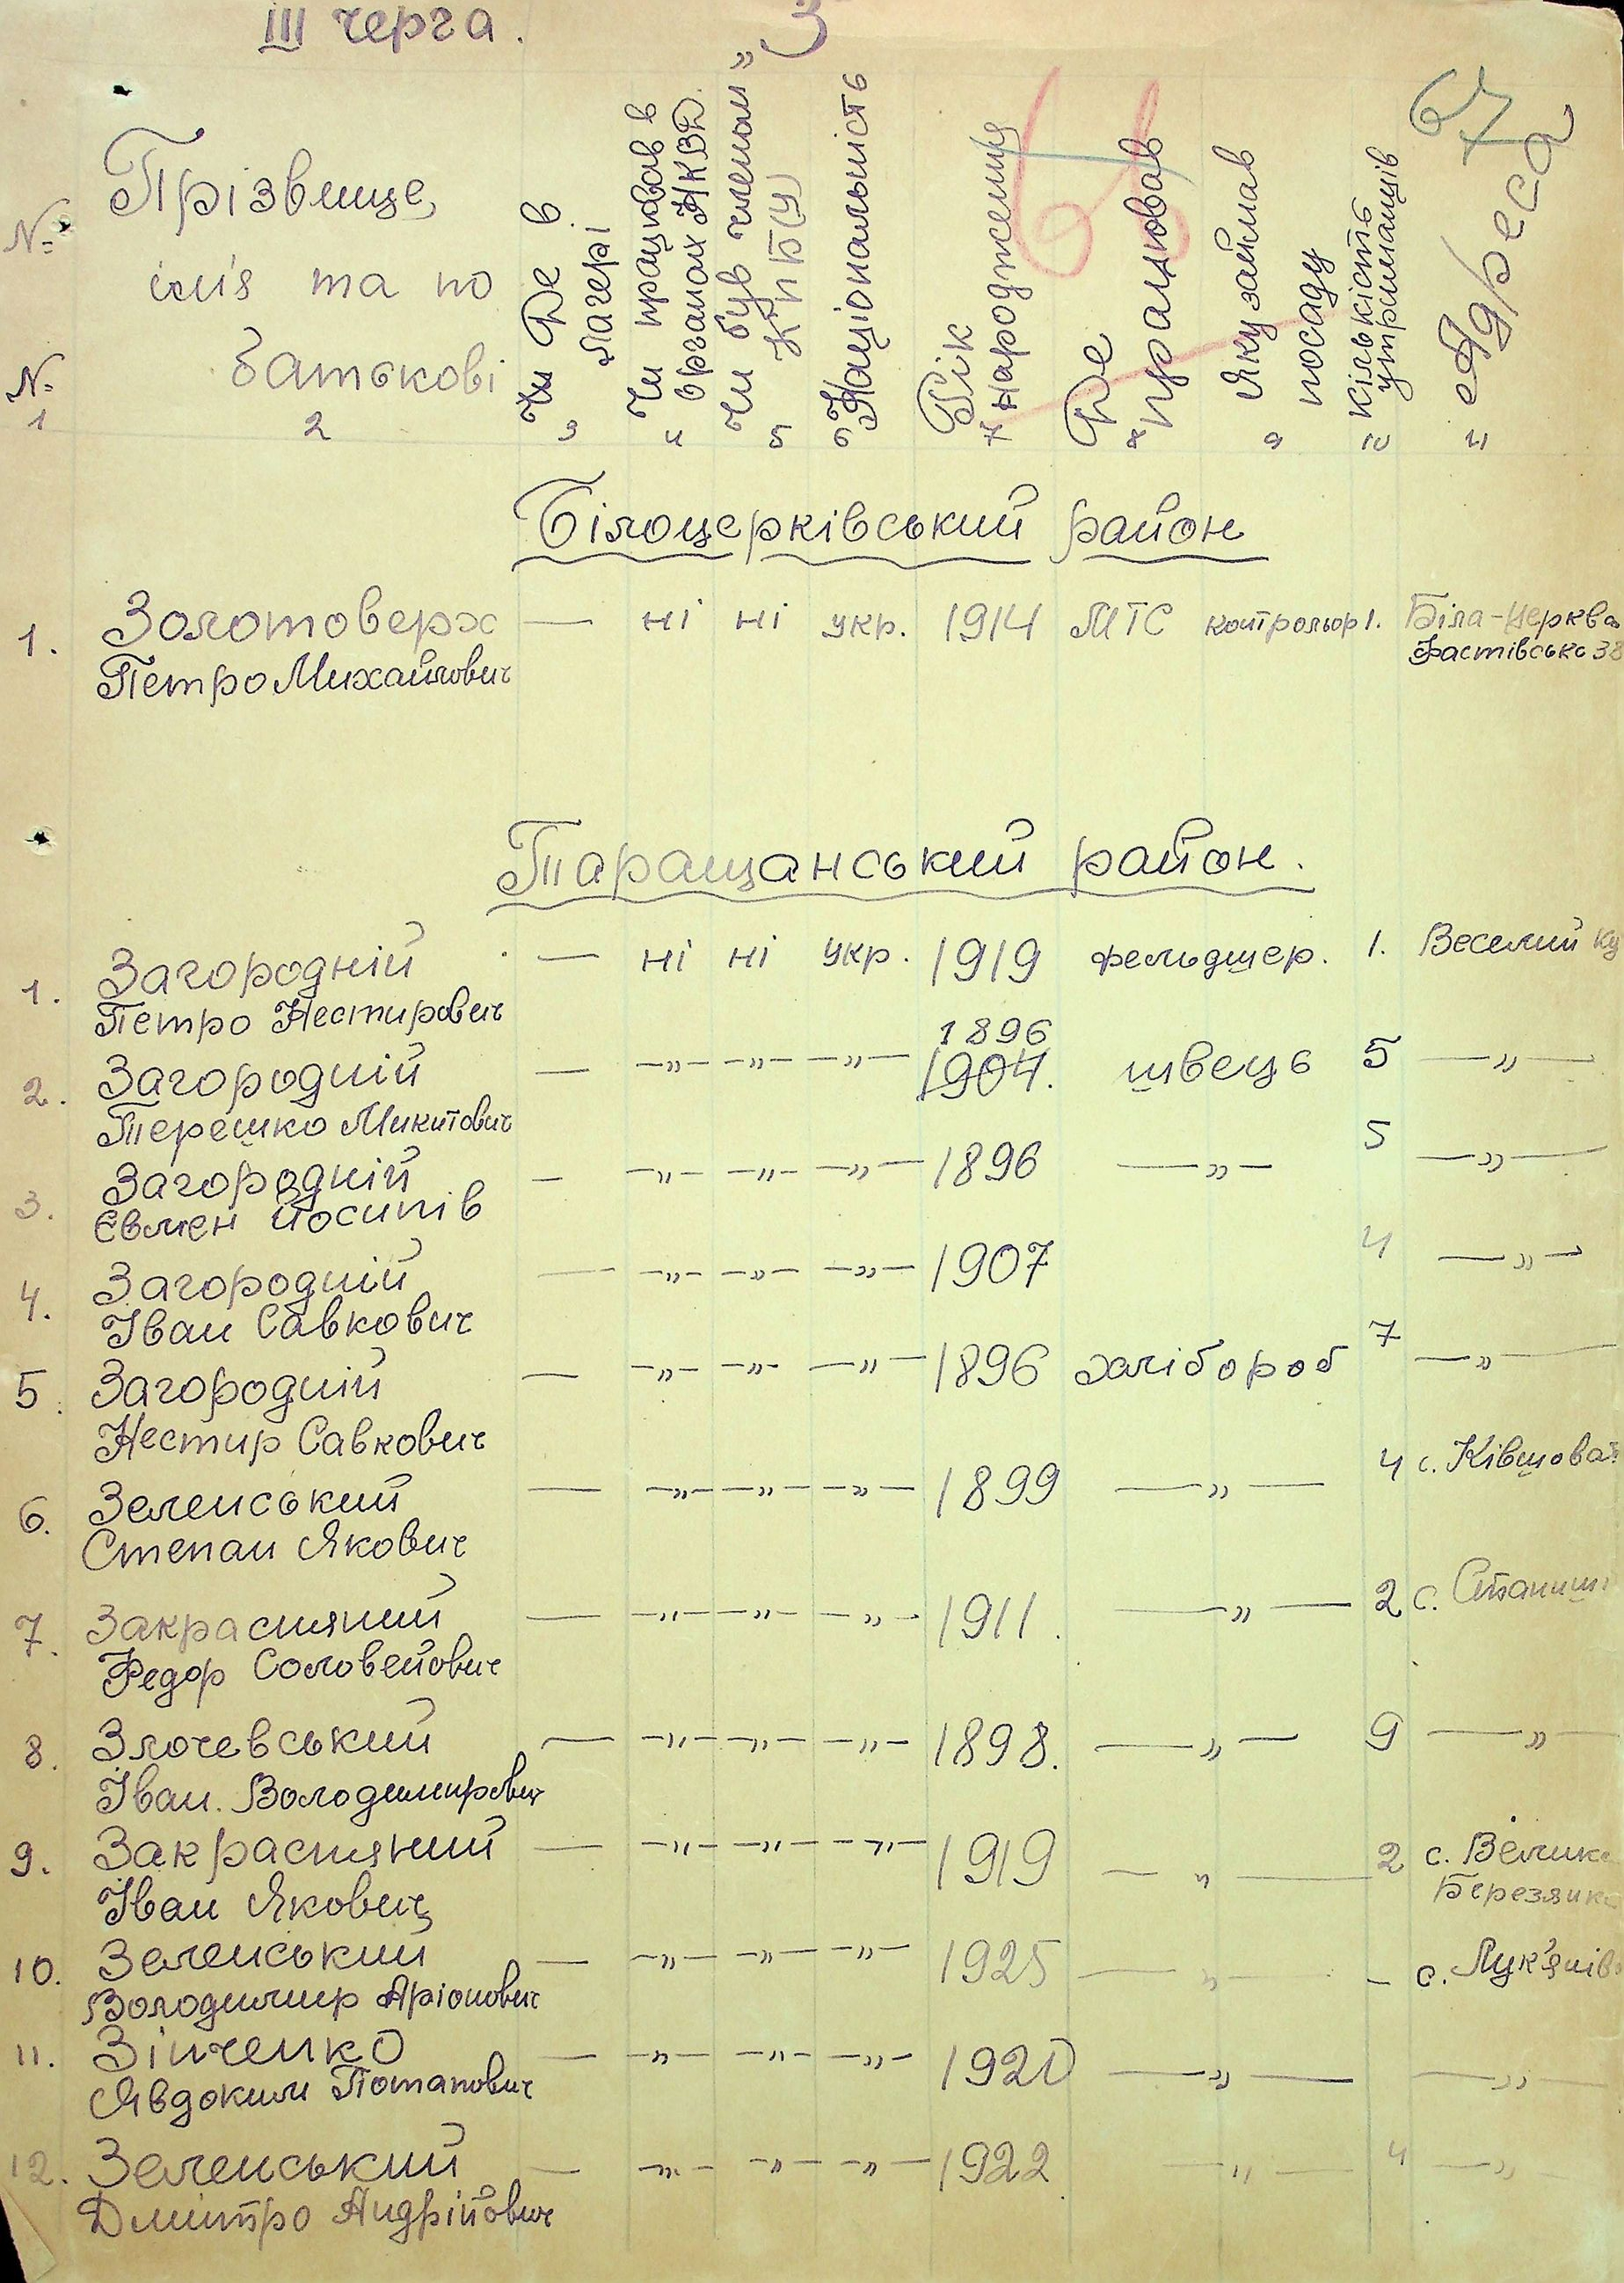 III черга. „З”
67
№ Прізвище,
імія та по
№ батькові
Чи Де в лагері
Чи працював в органах НКВД.
Чи був членом КПБ(у)
Національність
Рік народження
Де працював
Яку займав посаду
Кількість утриманців
Адреса
1 2 3 4 5 6 7 8 9 10 11
Білоцерківський район
1. Золотоверх — ні ні укр. 1914 МТС контрольор 1. Біла-Церква
Петро Михайлович Фастівська 38
Таращанський район.
1. Загородній — ні ні укр. 1919 фельдшер. 1. Веселий Ку
Петро Нестирович
1896
2. Загородній — —„— —„— —„— 1904. швець 5 —„—
Терешко Микитович
3. Загородній — —„— —„— —„— 1896 —„— 5 —„—
Євмен Йосипів
4. Загородній — —„— —„— —„— 1907 4 —„—
Іван Савкович
5. Загородній — —„— —„— —„— 1896 хлібороб 7 —„—
Нестир Савкович
6. Зеленський — —„— —„— —„— 1899 —„— 4 с. Ківшоват
Степан Якович
7. Закрасняний — —„— —„— —„— 1911. —„— 2 с. Станиш
Федор Соловейович
8. Злочевський — —„— —„— —„— 1898. —„— 9 —„—
Іван. Володимирович
9. Закрасняний — —„— —„— —„— 1919 —„— 2 с. Велико
Іван Якович Березянка
10. Зеленський — —„— —„— —„— 1925 —„— – с. Лук'янів
Володимир Аріонович
11. Зінченко — —„— —„— —„— 1920 —„— —„—
Явдоким Потапович
12. Зеленський — —„— —„— —„— 1922 —„— 4 —„—
Дмитро Андрійович